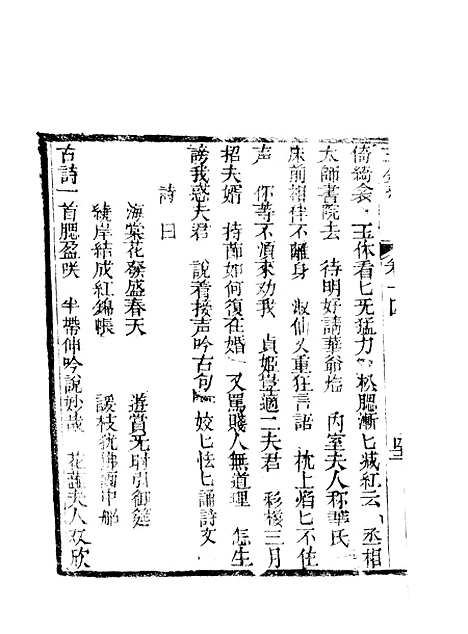 卷十四
倚綺衾 玉体看匕无猛力 松腮漸匕减紅云 丞相
太師書院去 待明好請華爺爺 內室夫人称華氏
床前相伴不離身 淑仙又重狂言語 枕上焰匕不住
声 你等不須來劝我 貞姬豈適二夫君 彩楼三月
招夫婿 持節如何復在婚 又罵賤人無道理 怎生
謗我惑夫君 說着接声吟古句 姣匕怯匕誦詩文
詩曰
海棠花發盛春天 遊賞无時引御筵
繞岸結成紅錦帳 暖枝犹拂画中船
古詩一首腮盈咲 半帶伸吟說妙哉 花蕊夫人双欣